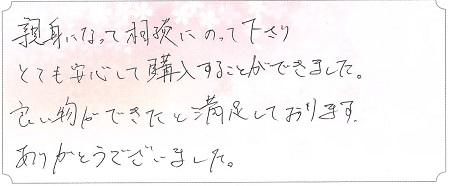 親身になって相談にのって下さり
とても安心して購入することができました。
良い物ができたと満足しております.
ありがとうでございました。